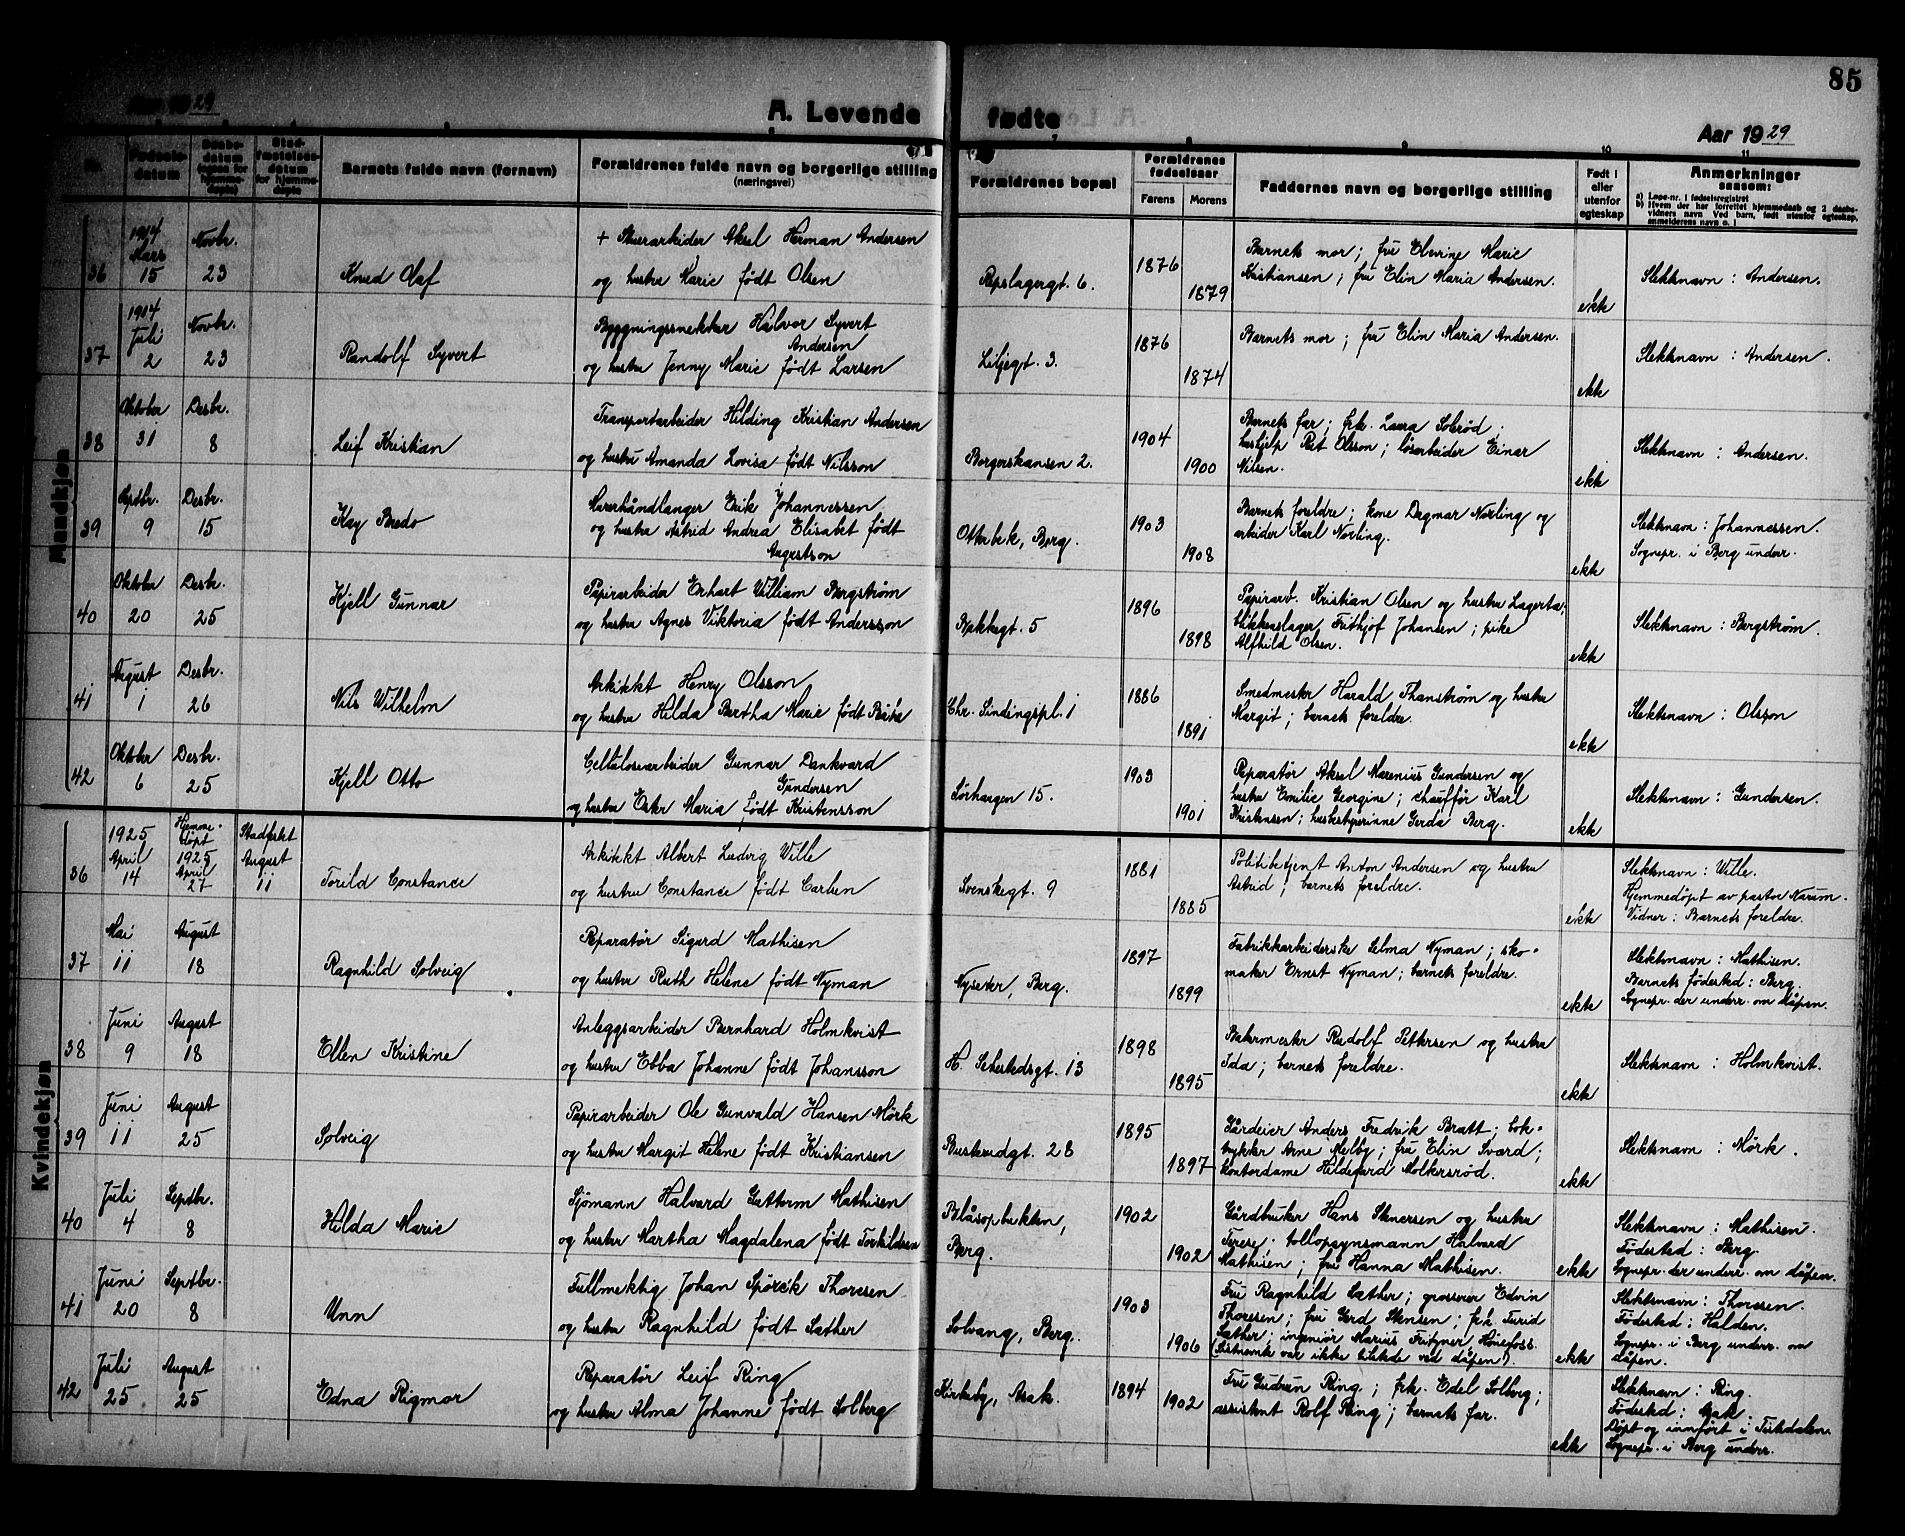 85
Aar 1929
A. Levende fødte
Aar 1929
Fødsels-datum
Daabs-datum
Stad-fæstelses-datum for hjemme-døpte
Barnets fulde navn (fornavn)
Forældrenes fulde navn og borgerlige stilling
(næringsvei)
Forældrenes bopæl
Forældrenes fødselsaar
Farens
Morens
Faddernes navn og borgerlige stilling
Født i eller utenfor egteskap
Anmerkninger
saasom:
a) Løpe-nr. i fødselsregistret
b) Hvem der har forrettet hjemmedaab og 2 daabs-
vidners navn Ved barn, født utenfor egteskap,
anmelderens navn o. l
Mandkjøn
36
1914 Mars 15
Novbr. 23
Knud Olaf
+ Skuearbeider Aksel Herman Andersen
og hustru Marie født Olsen
Repslagergt. 6.
1876
1879
Barnets mor; fru Elevine Marie
Kristiansen; fru Elin Maria Andersen.
ekte
Slektsnavn: Andersen.
37
1914 Juli 2
Novbr. 23
Randolf Syvert
Byggningssnekker Halvor Syvert
Andersen
og hustru Jenny Marie født Larsen
Liljegt. 3.
1876
1874
Barnets mor; fru Elin Maria Andersen.
ekte
Slektsnavn: Andersen.
38
Oktober 31
Desbr. 8
Leif Kristian
Transportarbeider Hilding Kristian Andersen
og hustru Amanda Lovisa født Nilsson
Borgerskansen 2.
1904
1900
Barnets far; frk. Laura Solrød;
hushjelp Olsson; løsarbeider Einar
Nilsen.
ekte
Slektsnavn: Andersen.
39
Septbr. 9
Desbr. 15
Kay Bredo
Murerhåndlanger Erik Johannessen
og hustru Astrid Andrea Elisabet født
Augustson
Otterbek, Berg.
1903
1908
Barnets foreldre; kone Dagmar Nørling og
arbeider Karl Nørling.
ekte
Slektsnavn: Johannessen.
Sognepr. i Berg underr.
40
Oktober 20
Desbr. 25
Kjell Gunnar
Papirarbeider Erhart William Bergstrøm
og hustru Agnes Viktoria født Andersson
Bekkegt. 5
1896
1898
Papirarb. Kristian Olsen og hustru Lagerta;
blikkenslager Frithjof Johansen; pike
Alfhild Olsen.
ekte
Slektsnavn: Bergstrøm.
41
August 1
Desbr. 26
Nils Wilhelm
Arkitekt Henry Olsson
og hustru Hilda Bertha Marie født
Chr. Sindingspl. 1
1886
1891
Smedmester Harald Thanstrøm og hustru
Margit; barnets foreldre.
ekte
Slektsnavn: Olsson
42
Oktober 6
Desbr. 25
Kjell Otto
Cellulosearbeider Gunnar Dankvard
Gundersen
og hustru Ester Maria født Kristensson
Sørhaugen 15.
1903
1901
Reparatør Aksel Marenius Gundersen og
hustru Emilie Georgine; chauffør Karl
Kristensen; husbestyrerinne Gerda Berg.
ekte
Slektsnavn: Gundersen.
Kvindekjøn
36
1925 April 14
Hjemme-døpt 1925 April 27
Stadfestet August 11
Torild Constance
Arkitekt Albert Ludvig Wille
og hustru Constance født Carlsen
Svenskegt. 9
1881
1885
Politibetjent Anton Andersen og hustru
Astrid; barnets foreldre.
ekte
Slektsnavn: Wille.
Hjemmedøpt av pastor Narum.
Vidner: Barnets foreldre.
37
Mai 11
August 18
Ragnhild Solveig
Reparatør Sigurd Mathisen
og hustru Ruth Helene født Nyman
Nyseter, Berg.
1897
1899
Fabrikkarbeiderske Selma Nyman; sko-
maker Ernst Nyman; barnets foreldre.
ekte
Slektsnavn: Mathisen.
Barnets fødested: Berg.
Sognepr. der underr. om dåpen.
38
Juni 9
August 18
Ellen Kristine
Anleggsarbeider Bernhard Holmkvist
og hustru Ebba Johanne født Johansson
H. Sehestedsgt. 13
1898
1895
Bakermester Rudolf Pettersen og hustru
Ida; barnets foreldre.
ekte
Slektsnavn: Holmkvist.
39
Juni 11
August 25
Solveig
Papirarbeider Ole Gunvald Hansen Mörk
og hustru Margit Helene født Kristiansen
Busterudgt. 28
1895
1897
Gårdeier Anders Fredrik Bratt; bok-
trykker Arne Melby; fru Elin Svard;
kontordame Hildegard Molkersrød.
ekte
Slektsnavn: Mörk.
40
Juli 4
Septbr. 8
Hilda Marie
Sjømann Halvard Guttorm Mathisen
og hustru Martha Magdalena født Torkildsen
Blåsopbukten,
Berg.
1902
1902
Gårdbruker Hans Stenersen og hustru
Terese; tollopsynsmann Halvard
Mathisen; fru Hanna Mathisen.
ekte
Slektsnavn: Mathisen.
Fødested: Berg.
Sognepr. der underr. om dåpen.
41
Juni 20
Septbr. 8
Unn
Fullmektig Johan Spörck Thoresen
og hustru Ragnhild født Sæther
Solvang, Berg.
1903
1906
Fru Ragnhild Sæther; grosserer Edvin
Thoresen; fru Gerd Stensen; frk. Turid
Sæther; ingeniør Marius Fritzner, Hønefoss
(Sistnevnte var ikke tilstede ved dåpen).
ekte
Slektsnavn: Thoresen.
Fødested: Halden.
Sognepr. i Berg underr. om
dåpen.
42
Juli 25
August 25
Edna Rigmor
Reparatør Leif Ring
og hustru Alma Johanne født Solberg
Kirkeby, Asak.
1894
1902
Fru Gudrun Ring; frk. Edel Solberg;
assistent Rolf Ring; barnets far.
ekte
Slektsnavn: Ring.
Fødested: Asak.
Døpt og innført i Tistedalen.
Sognepr. i Berg underr.